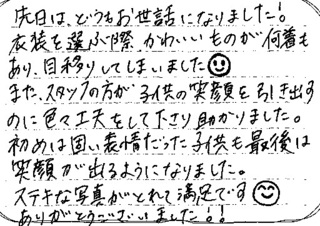 先日は、どうもお世話になりました!
衣装を選ぶ際、かわいいものが何着も
あり、目移りしてしまいました
また、スタッフの方が子供の笑顔を引き出す
のに色々工夫をして下さり助かりました。
初めは固い表情だった子供も最後は
笑顔が出るようになりました。
ステキな写真がとれて満足です
ありがとうございました!!